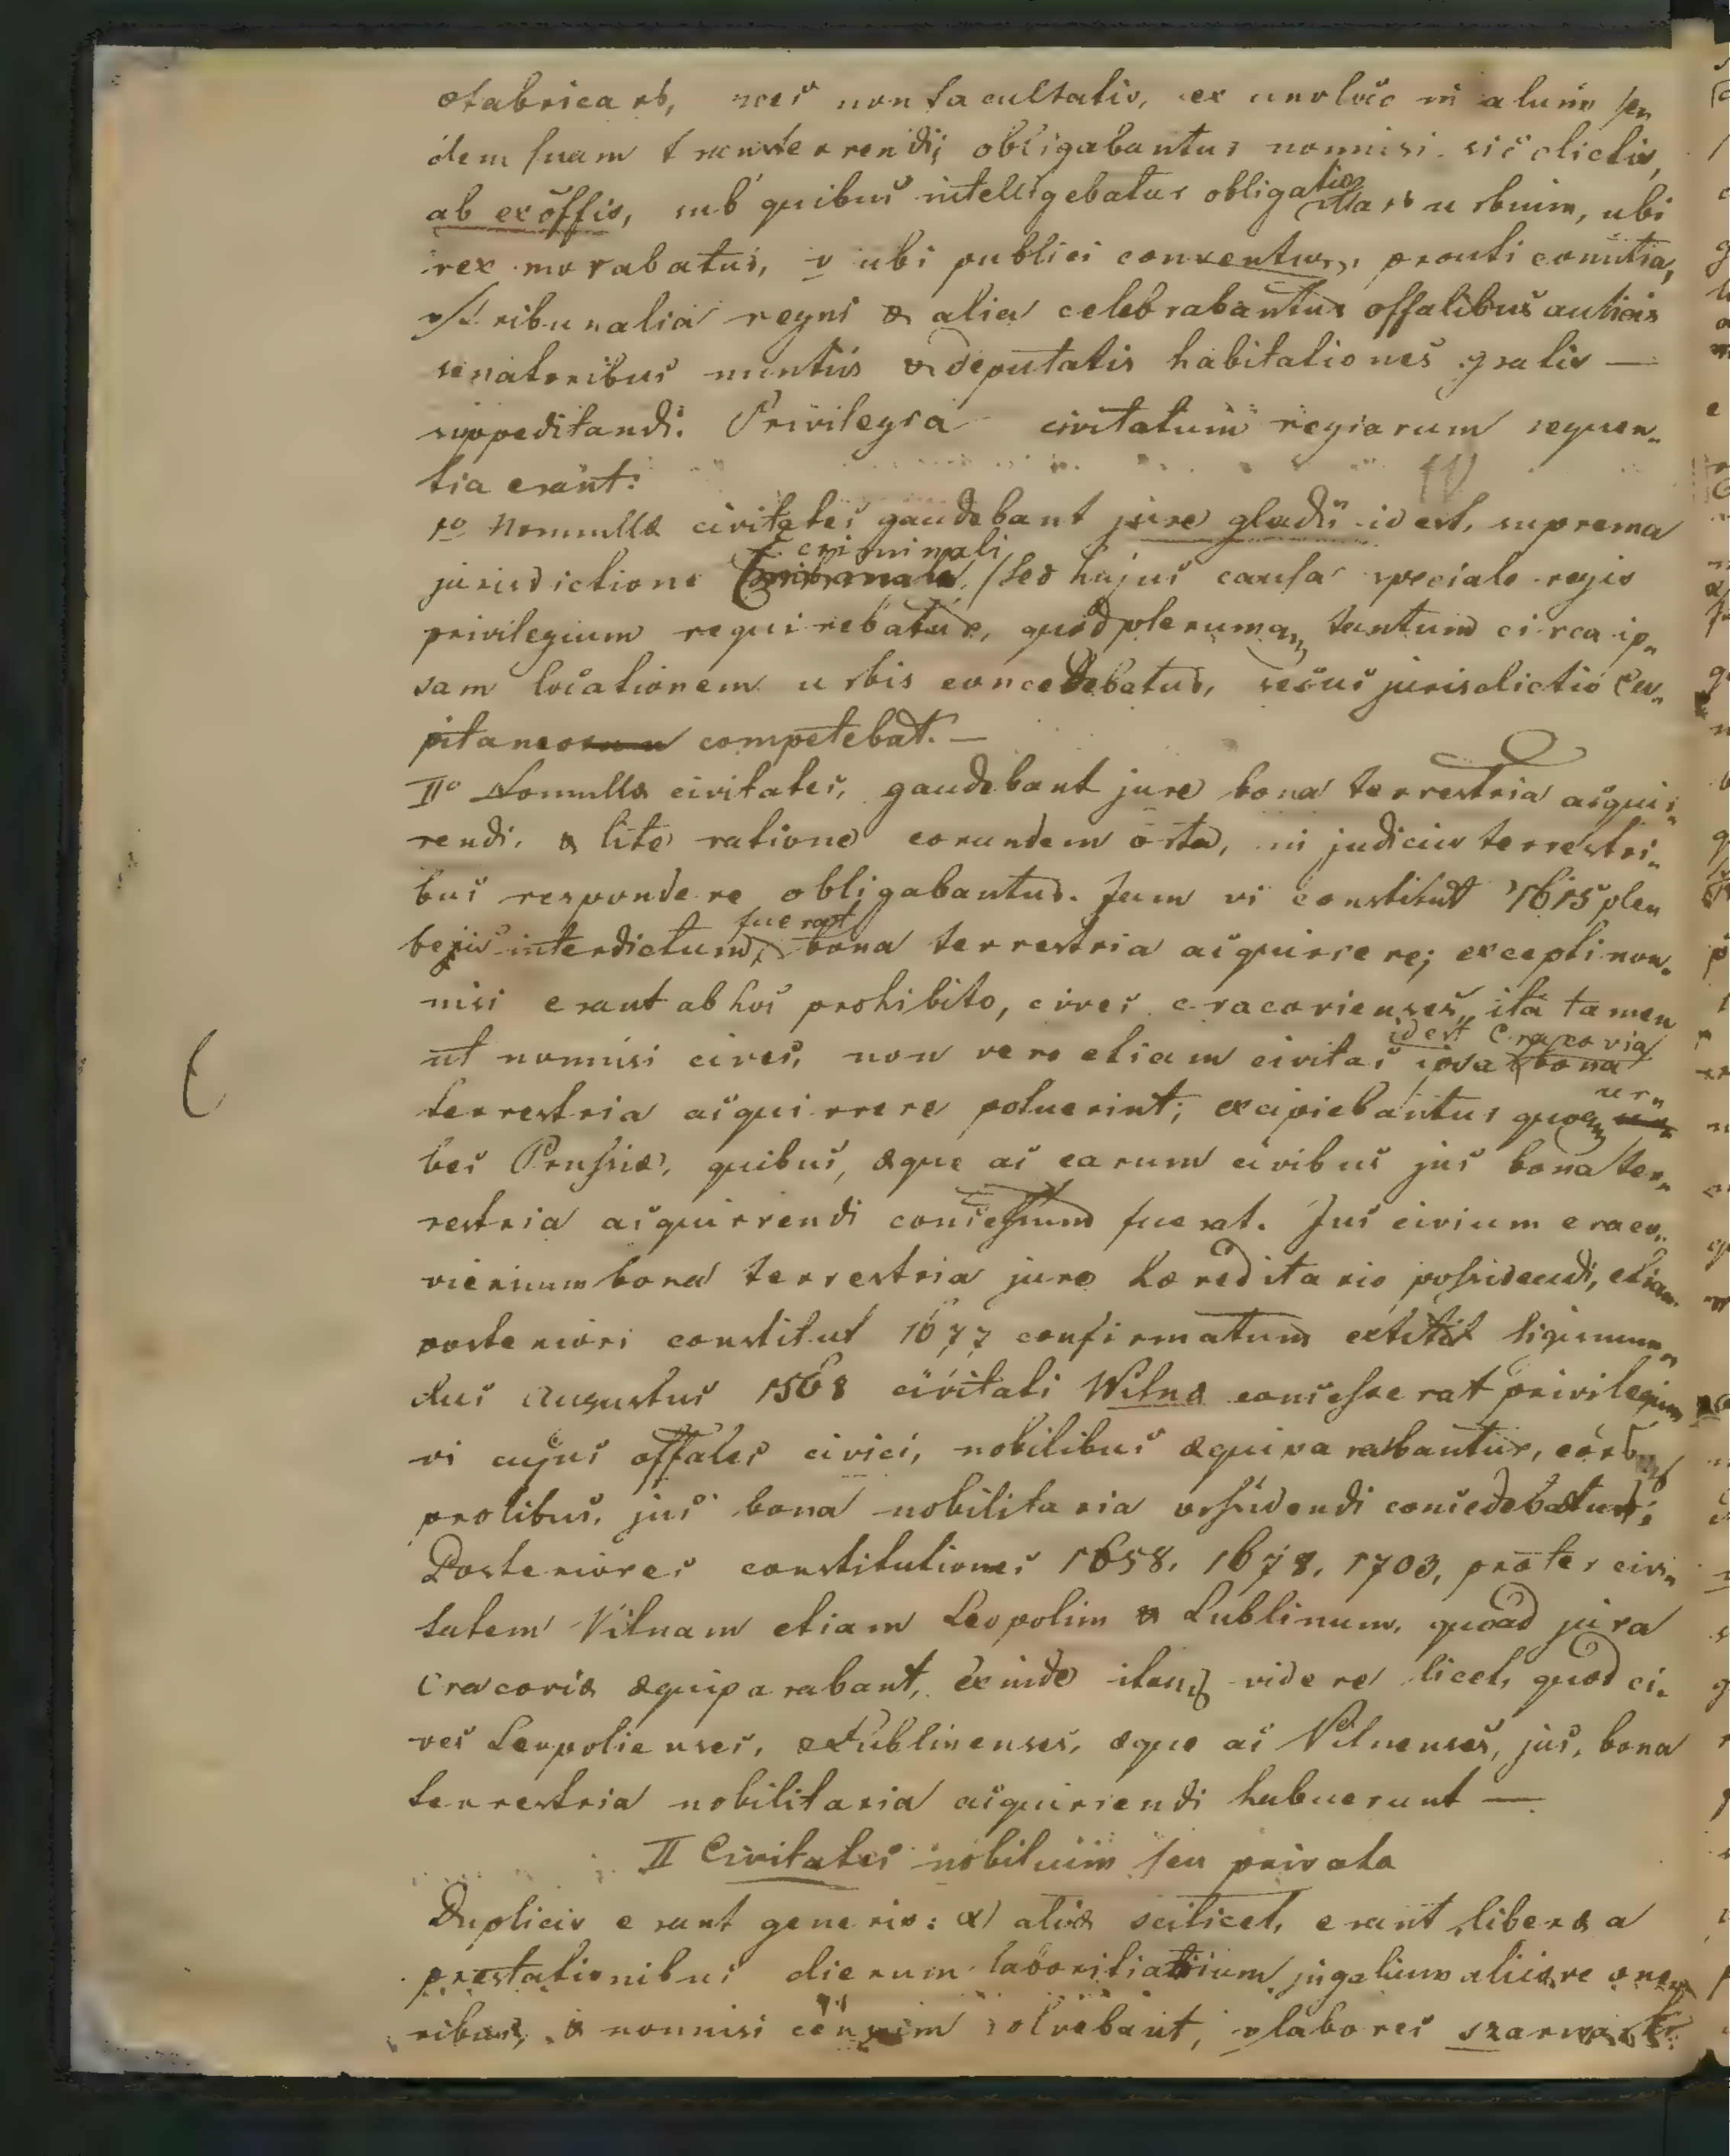 nec non facultatis, ex uno loco in alium se
dem suam transferrendi; obligabantur nonnisi sic dictis
ab exoffis, sub quibus intelligebatur obligatio illarum urbium, ubi
rex morabatur, v ubi publici conventus, prouti comitia,
v tribunalia regni & alia celebrabantur offalibus aulicis
senatoribus nuntiis & deputatis habitationes gratis —
suppeditandi. Privilegia civitatum regiarum sequen„
tia erant:
1o Nonnullæ civitates gaudebant jure gladii id est, suprema
jurisdictione criminali, sed hujus causa speciale regis
privilegium requirebatur, quod plerumq tantum circa ip„
sam locationem urbis concedebatur, secus jurisdictio Ca„
pitaneo competebat. —
IIo Nonnullæ civitates, gaudebant jure bona terrestria acqui„
rendi, & lite ratione eorundem orta, in judiciis terrestri„
bus respondere obligabantur. Jam vi constitut 1615 ple
bejis interdictum fuerat, bona terrestria acquirere; excepti non„
nisi erant ab hoc prohibito, cives cracovienses, ita tamen
ut nonnisi cives, non vero etiam civitas ipsa id est Cracovia bona
terrestria acquirrere potuerint; excipiebantur quoq ur„
bes Prussiæ, quibus, æque ac earum civibus jus bona ter„
restria acquirrendi concessum fuerat. Jus civium craco„
viensium bona terrestria jure hæreditario possidendi, etiam
posteriori constitut 1677 confirmatum extitit Sigismun„
dus Augustus 1568 civitati Wilnæ concesserat privilegium
vi cujus offales civici, nobilibus æquiparabantur,
prolibus, jus bona nobilitaria possidendi concedebatur;
Posteriores constitutiones 1658, 1678, 1703, præter civi„
tatem Vilnam etiam Leopolim & Lublinum, quoad jura
Cracoviæ æquiparabant, exinde itaq videre licet, quod ci„
ves Leopolienses, & Lublinenses, æque ac Vilnenses, jus, bona
terrestria nobilitaria acquiriendi habuerunt —
II Civitates nobilium seu privatæ
Duplicis erant generis: a) aliæ scilicet, erant liberæ a
prestationibus dierum jugalium aliisve one„
ribus, & nonnisi censum solvebant, v labores szarwark